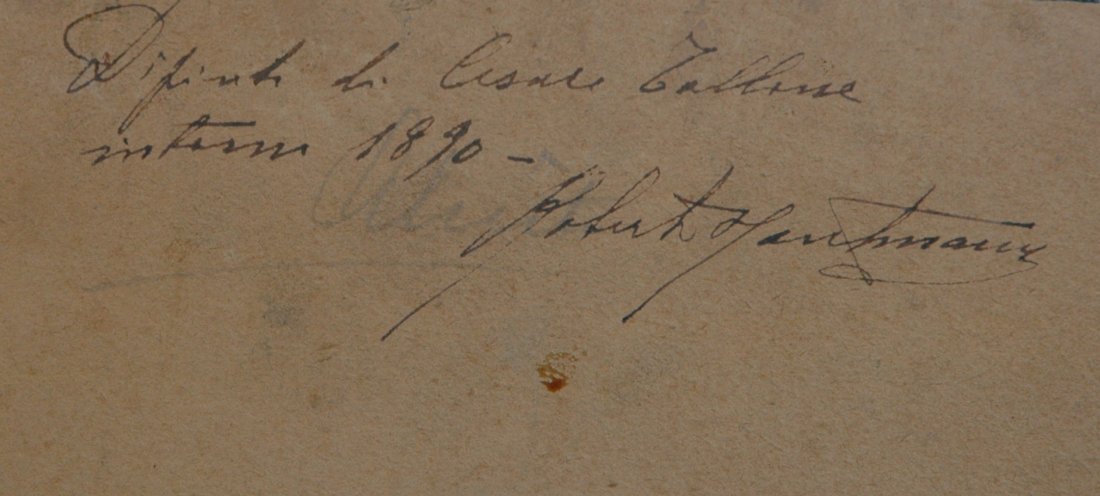 Dipinto di Cesare Tallone
intorno 1890 -
Robert Hartmann